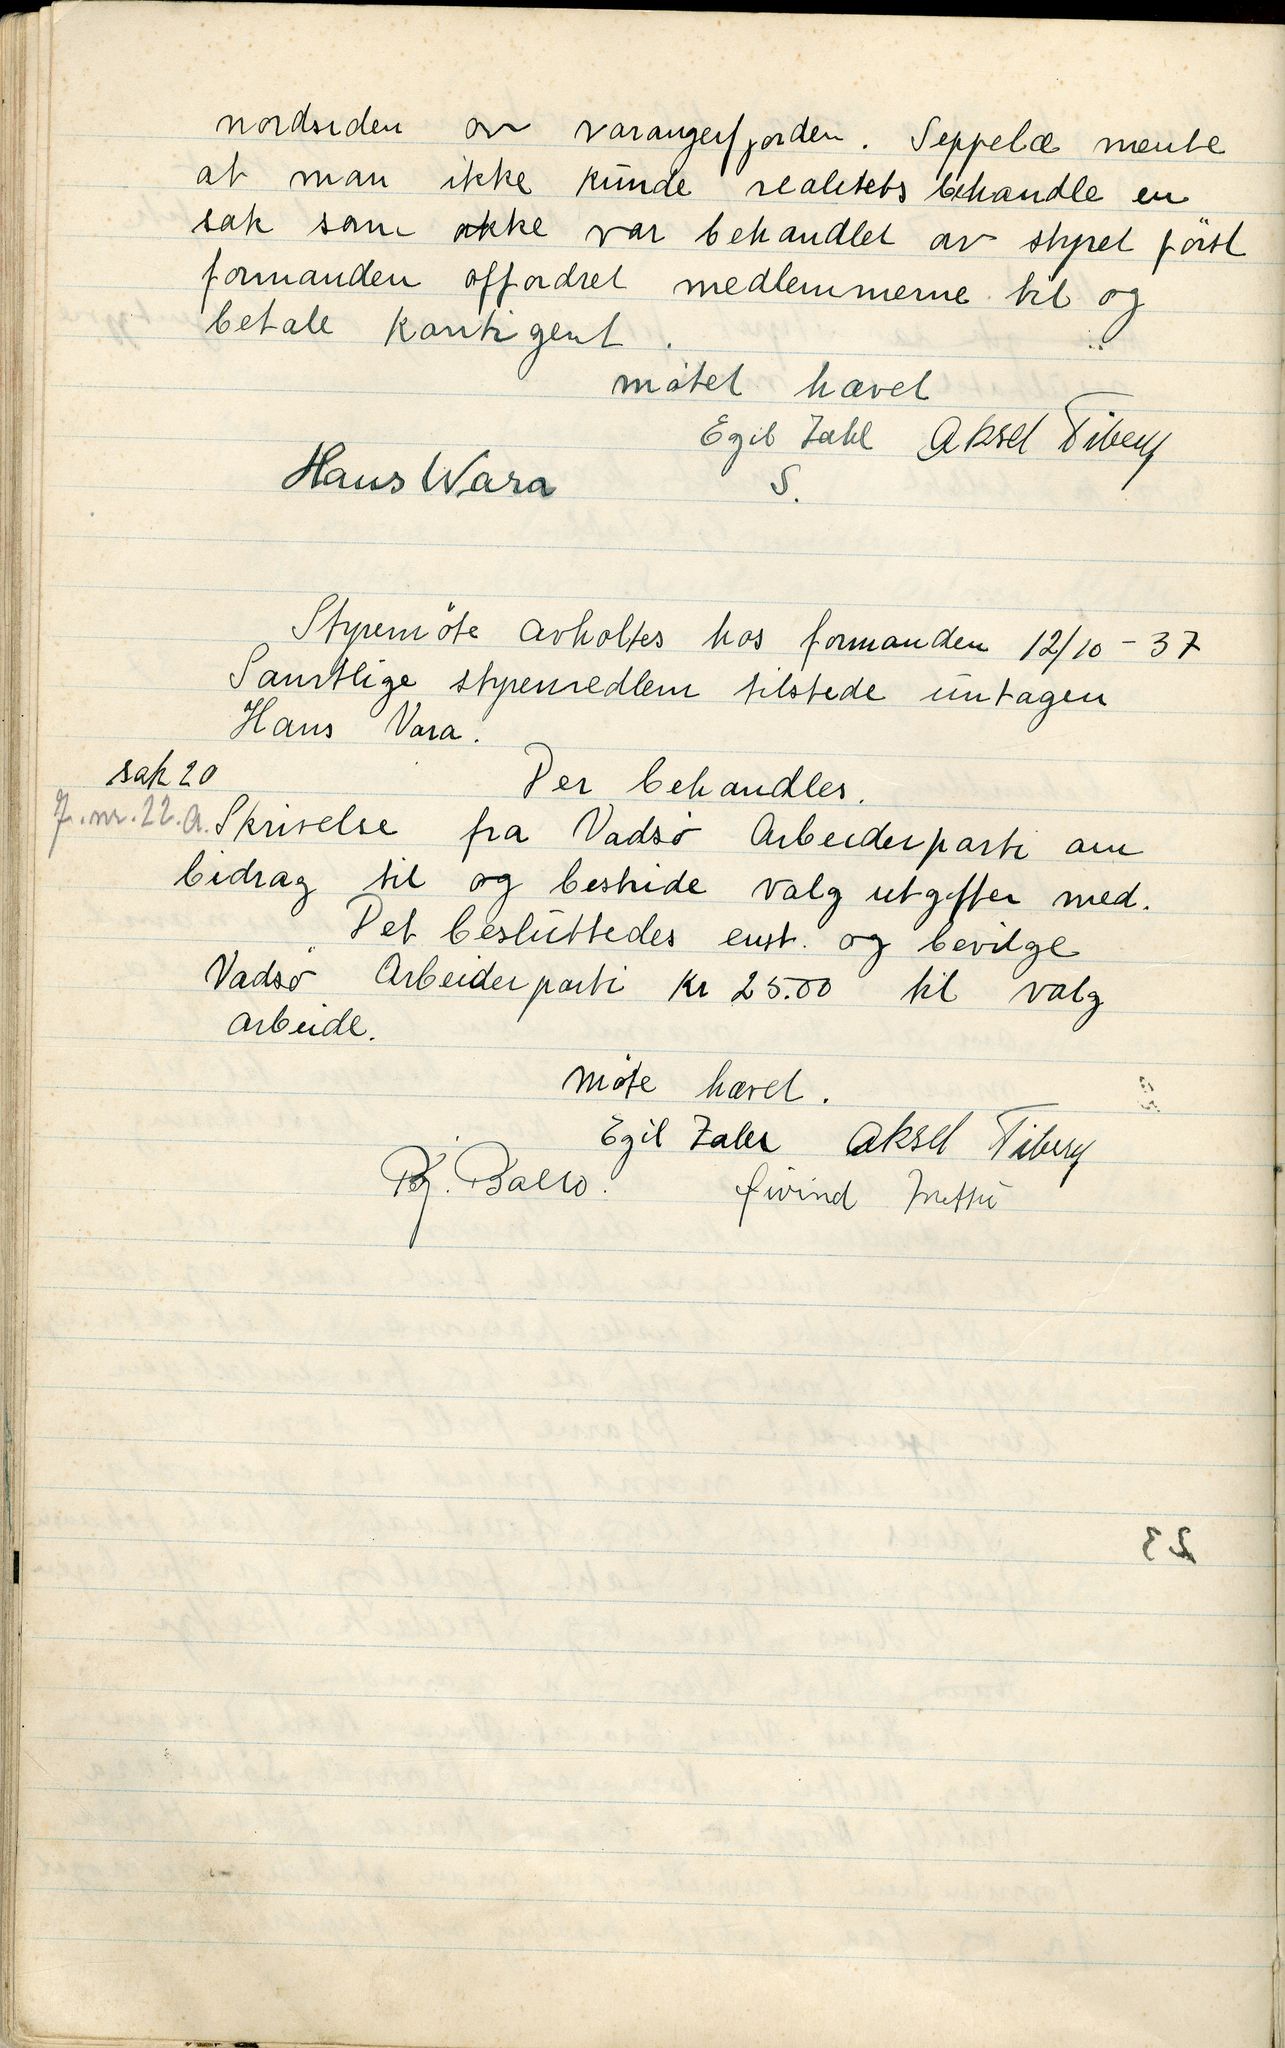 nordsiden av varangerfjorden. Seppelæ mente
at man ikke kunde realitetsbehandle en
sak som ikke var behandlet av styret först
formanden offordret medlemmerne til og
betale kontigent.
mötet hævet
Egil Zahl Aksel Tiberg
S.
Hans Wara
Styremöte avholtes hos formanden 12/10 - 37
Samtlige styremedlem tilstede untagen
Hans Vara.
sak 20
Der behandles.
J. nr. 22. a. Skrivelse fra Vadsö Arbeiderparti om
bidrag til og bestride valg utgifter med.
Det besluttedes enst. og bevilge
Vadsö Arbeiderparti kr 25.00 til valg
arbeide.
Möte hævet.
Egil Zahl Aksel Tiberg
Bj. Ballo. Øivind
23